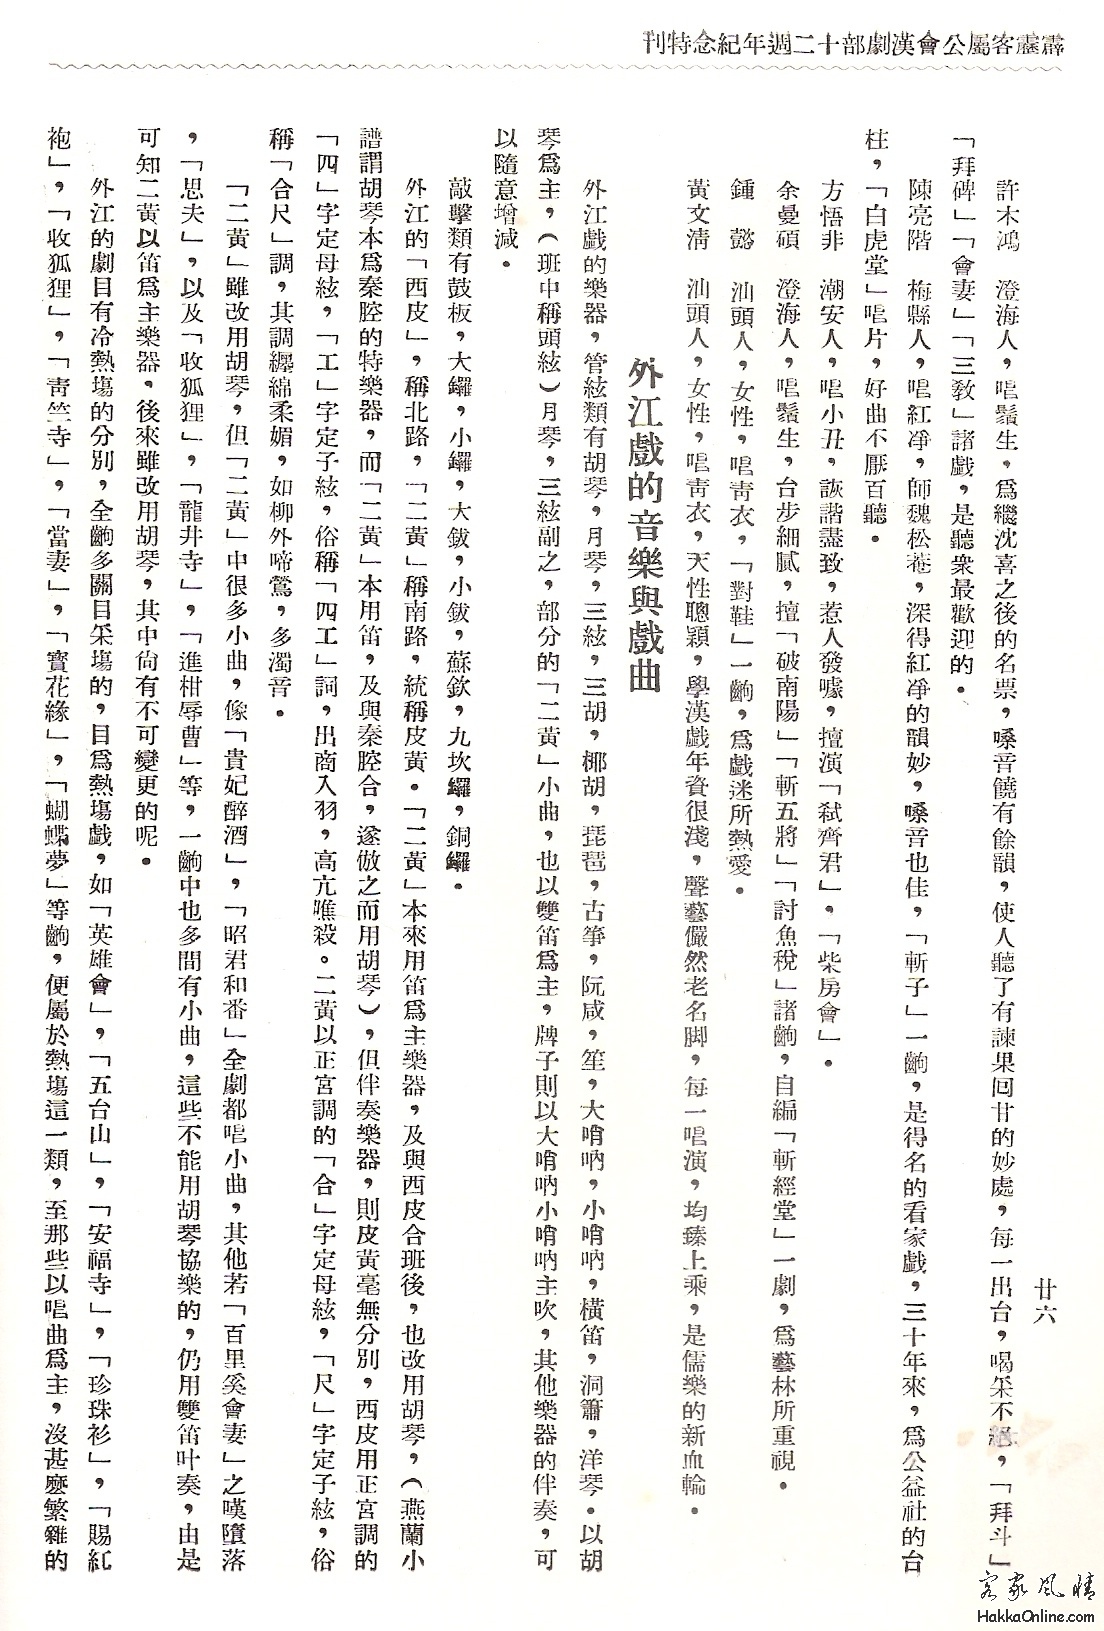 霹靂客屬公會漢劇部十二週年紀念特刊
廿六
許木鴻　澄海人，唱鬚生，爲繼沈喜之後的名票，嗓音饒有餘韻，使人聽了有諫果回甘的妙處，每一出台，喝采不絕，「拜斗」
「拜碑」「會妻」「三教」諸戲，是聽衆最歡迎的．
陳亮階　梅縣人，唱紅净，師魏松菴，深得紅净的韻妙，嗓音也佳，「斬子」一齣，是得名的看家戲，三十年來，爲公益社的台
柱，「白虎堂」唱片，好曲不厭百聽．
方悟非　潮安人，唱小丑，詼諧盡致，惹人發噱，擅演「弒齊君」．「柴房會」．
余曼碩　澄海人，唱鬚生，台步細膩，擅「破南陽」「斬五將」「討魚稅」諸齣，自編「斬經堂」一劇，爲藝林所重視．
鍾　懿　汕頭人，女性，唱靑衣，「對鞋」一齣，爲戲迷所熱愛．
黃文淸　汕頭人，女性，唱靑衣，天性聰穎，學漢戲年資很淺，聲藝儼然老名脚，每一唱演，均臻上乘，是儒樂的新血輪．
外江戲的音樂與戲曲
外江戲的樂器，管絃類有胡琴，月琴，三絃，三胡，椰胡，琵琶，古箏，阮咸，笙，大哨吶，小哨吶，橫笛，洞簫，洋琴．以胡
琴爲主，（班中稱頭絃）月琴，三絃副之，部分的「二黃」小曲，也以雙笛爲主，牌子則以大哨吶小哨吶主吹，其他樂器的伴奏，可
以隨意增減．
敲擊類有鼓板，大鑼，小鑼，大鈸，小鈸，蘇欽，九坎鑼，銅鑼．
外江的「西皮」，稱北路，「二黃」稱南路，統稱皮黃．「二黃」本來用笛爲主樂器，及與西皮合班後，也改用胡琴，（燕蘭小
譜謂胡琴本爲秦腔的特樂器，而「二黃」本用笛，及與秦腔合，遂倣之而用胡琴），但伴奏樂器，則皮黃毫無分別，西皮用正宮調的
「四」字定母絃，「工」字定子絃，俗稱「四工」詞，出商入羽，高亢噍殺。二黃以正宮調的「合」字定母絃，「尺」字定子絃，俗
稱「合尺」調，其調纏綿柔媚，如柳外啼鶯，多濁音．
「二黃」雖改用胡琴，但「二黃」中很多小曲，像「貴妃醉酒」，「昭君和番」全劇都唱小曲，其他若「百里奚會妻」之嘆墮落
，「思夫」，以及「收狐狸」，「龍井寺」，「進柑辱曹」等，一齣中也多間有小曲，這些不能用胡琴協樂的，仍用雙笛叶奏，由是
可知二黃以笛爲主樂器，後來雖改用胡琴，其中尙有不可變更的呢．
外江的劇目有冷熱塲的分別，全齣多關目采塲的，目爲熱塲戲，如「英雄會」，「五台山」，「安福寺」，「珍珠衫」，「賜紅
袍」，「收狐狸」，「靑竺寺」，「當妻」，「寳花緣」，「蝴蝶夢」等齣，便屬於熱塲這一類，至那些以唱曲爲主，沒甚麽繁雜的
客家風情
HakkaOnline.com